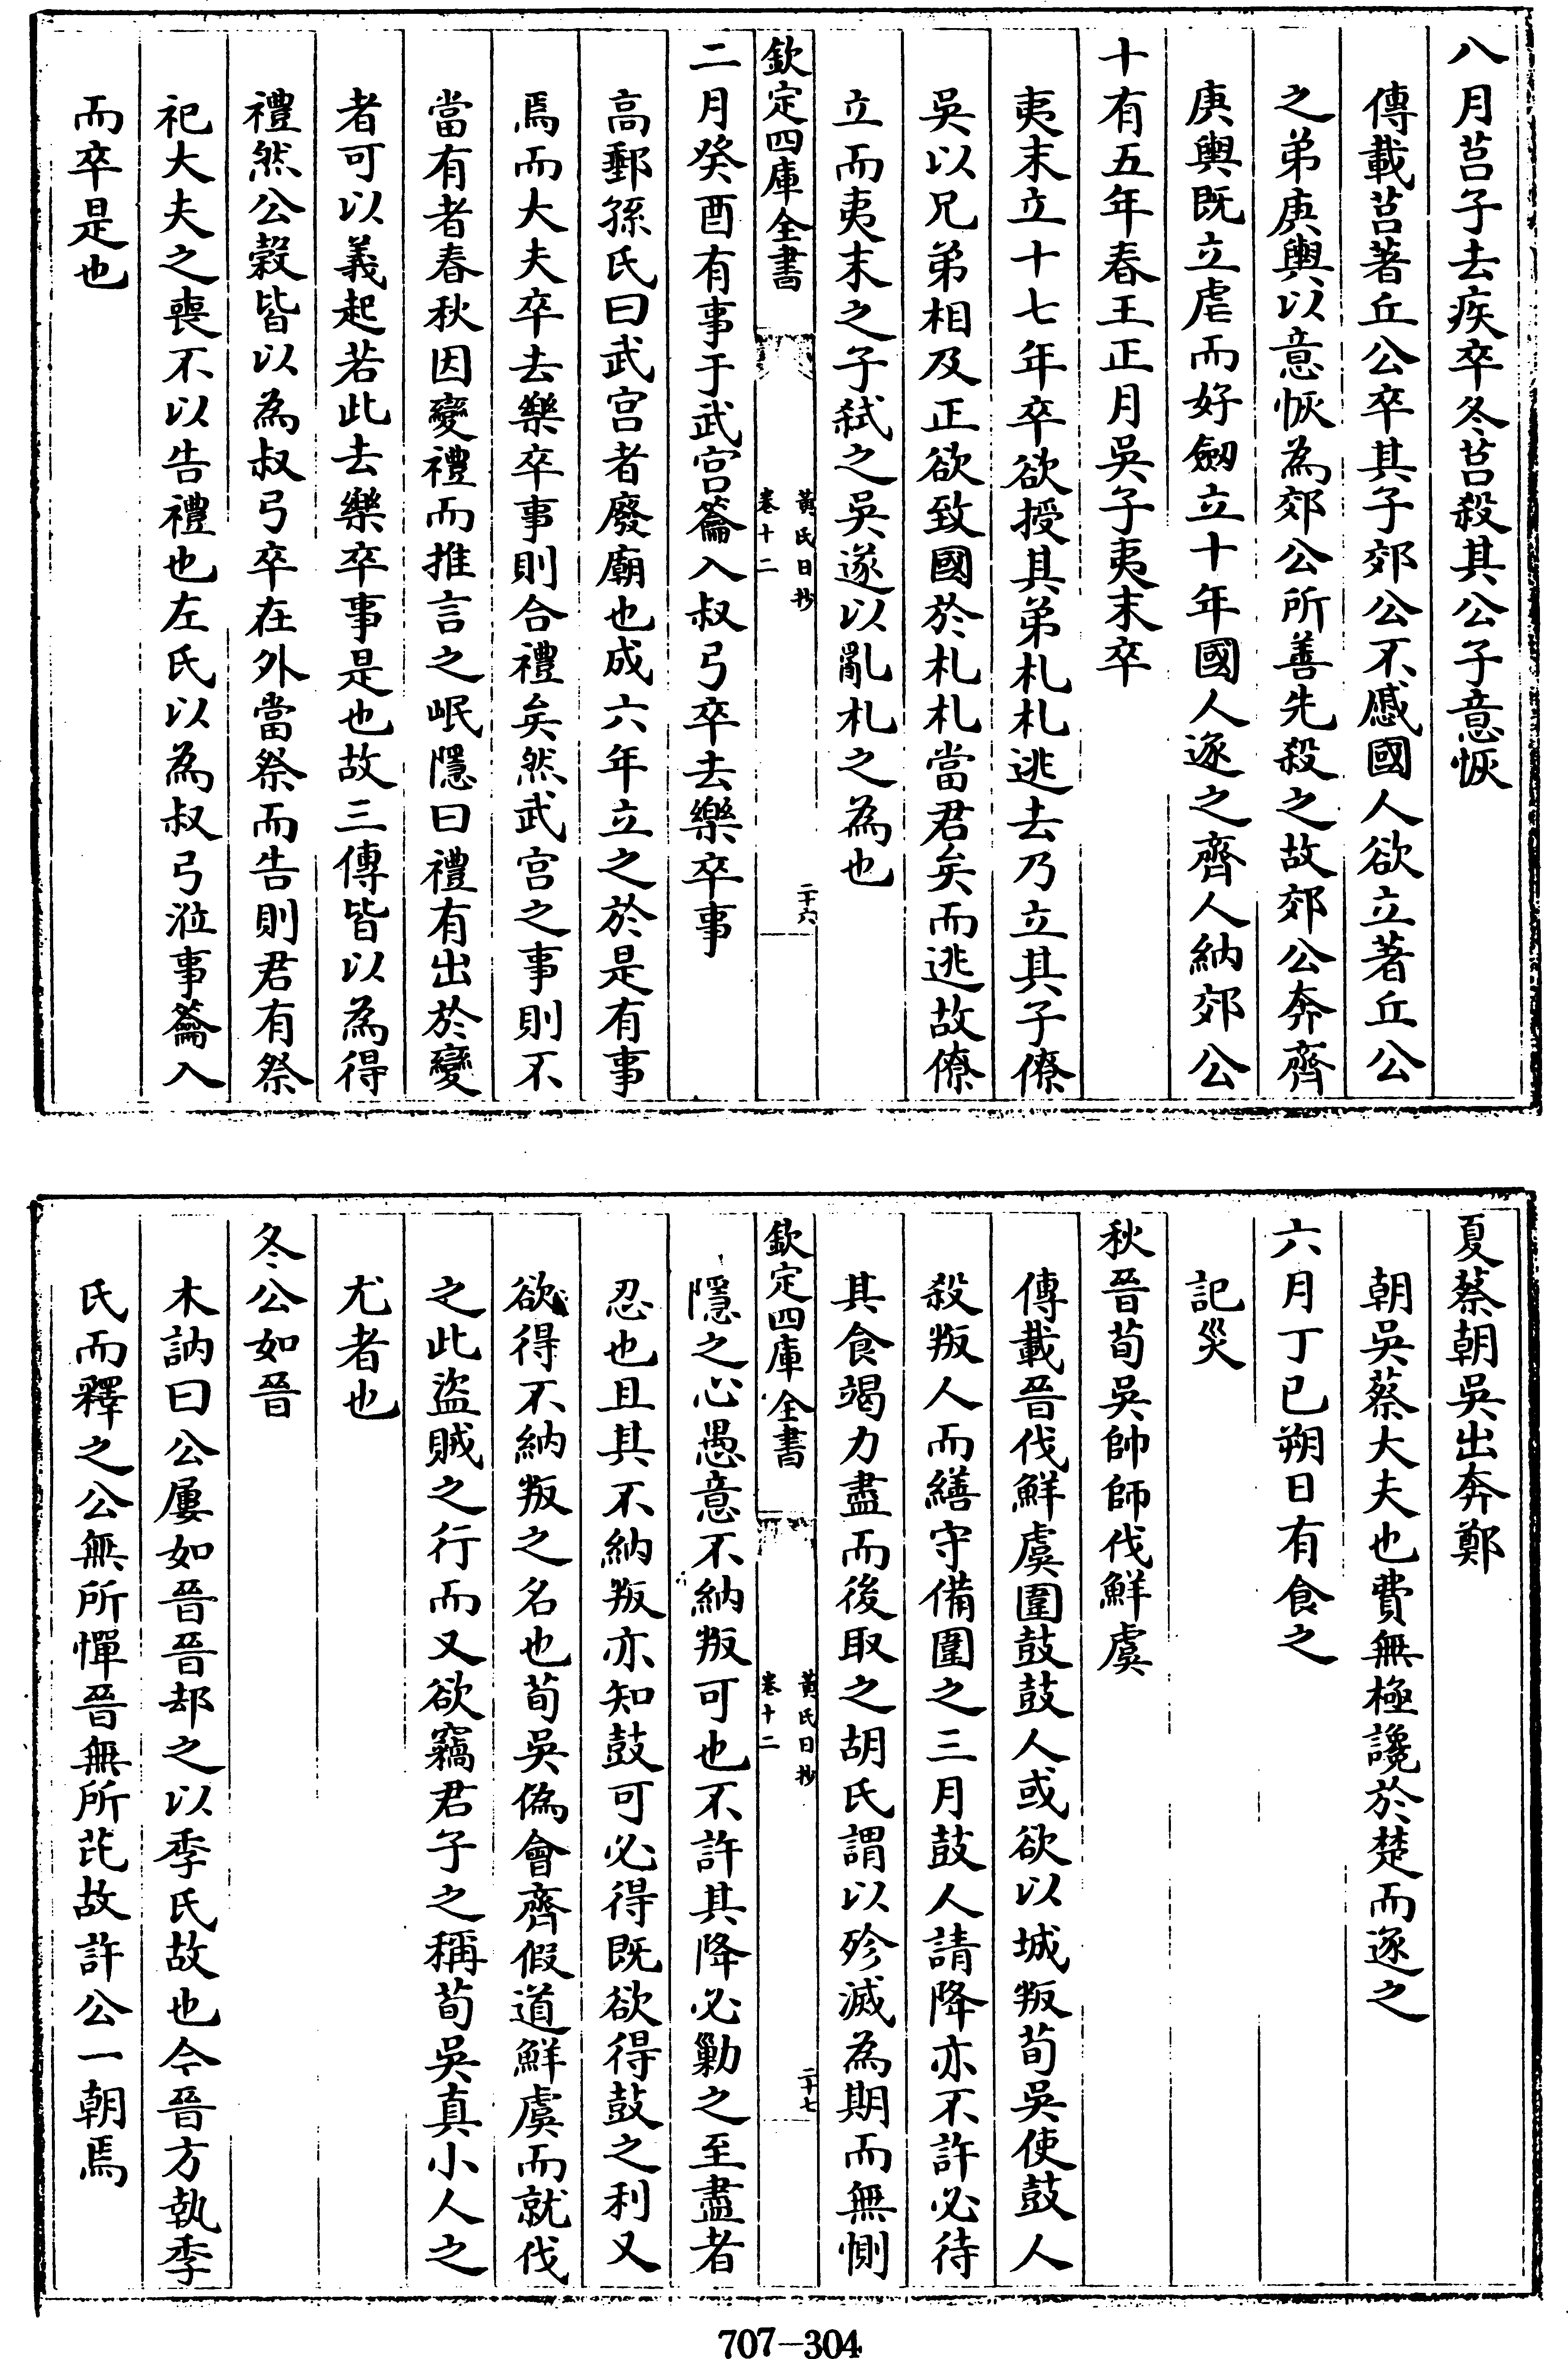 八月莒子去疾卒冬莒殺其公子意恢
傳載莒著丘公卒其子郊公不慼國人欲立著丘公
之弟庚輿以意恢為郊公所善先殺之故郊公奔齊
庚輿既立虐而好劔立十年國人逐之齊人納郊公
十有五年春王正月吳子夷末卒
夷末立十七年卒欲授其弟札札逃去乃立其子僚
吳以兄弟相及正欲致國於札札當君矣而逃故僚
立而夷末之子弒之吳遂以亂札之為也
欽定四庫全書
黃氏日抄
卷十二
二十六
二月癸酉有事于武宮籥入叔弓卒去樂卒事
高郵孫氏曰武宮者廢廟也成六年立之於是有事
焉而大夫卒去樂卒事則合禮矣然武宮之事則不
當有者春秋因變禮而推言之岷隱曰禮有出於變
者可以義起若此去樂卒事是也故三傳皆以為得
禮然公榖皆以為叔弓卒在外當祭而告則君有祭
祀大夫之喪不以告禮也左氏以為叔弓涖事籥入
而卒是也
夏蔡朝吳出奔鄭
朝吳蔡大夫也費無極讒於楚而逐之
六月丁巳朔日有食之
記災
秋晉荀吳帥師伐鮮虞
傳載晉伐鮮虞圍鼓鼓人或欲以城叛荀吳使鼓人
殺叛人而繕守備圍之三月鼓人請降亦不許必待
其食竭力盡而後取之胡氏謂以殄滅為期而無惻
欽定四庫全書
黃氏日抄
卷十二
二十七
隱之心愚意不納叛可也不許其降必勦之至盡者
忍也且其不納叛亦知鼓可必得既欲得鼓之利又
欲得不納叛之名也荀吳偽會齊假道鮮虞而就伐
之此盜賊之行而又欲竊君子之稱荀吳真小人之
尤者也
冬公如晉
木訥曰公屢如晉晉却之以季氏故也今晉方執季
氏而釋之公無所憚晉無所芘故許公一朝焉
707-304